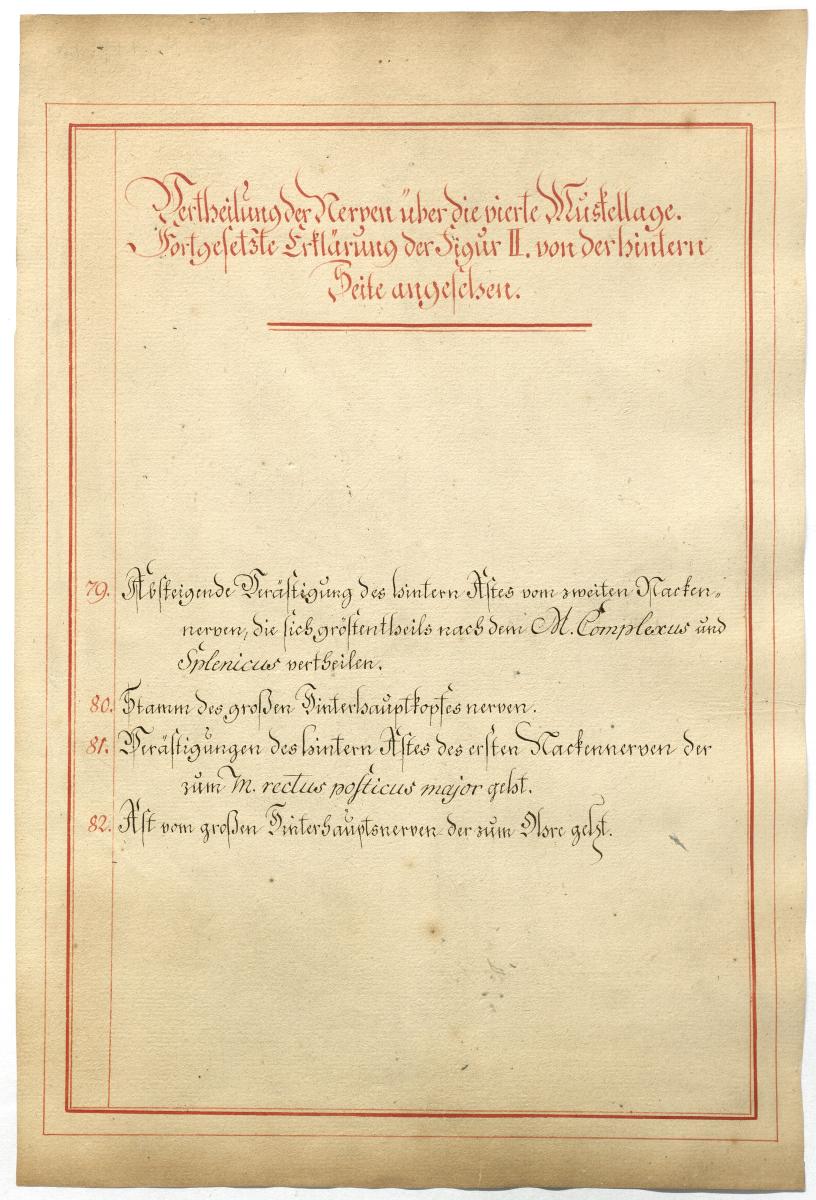 Vertheilung der Nerven über die vierte Muskellage.
Fortgesetzte Erklärung der Figur II. von der hintern
Seite angesehen.
79. Absteigende Verästigung des hintern Astes vom zweiten Nacken-
nerven, die sich gröstentheils nach dem M. Complexus und
Splenicus vertheilen.
80. Stamm des großen Hinterhauptkopfes nerven.
81. Verästigungen des hintern Astes des ersten Nackennerven der
zum M. rectus posticus major geht.
82. Ast vom großen Hinterhauptsnerven der zum Ohre geht.